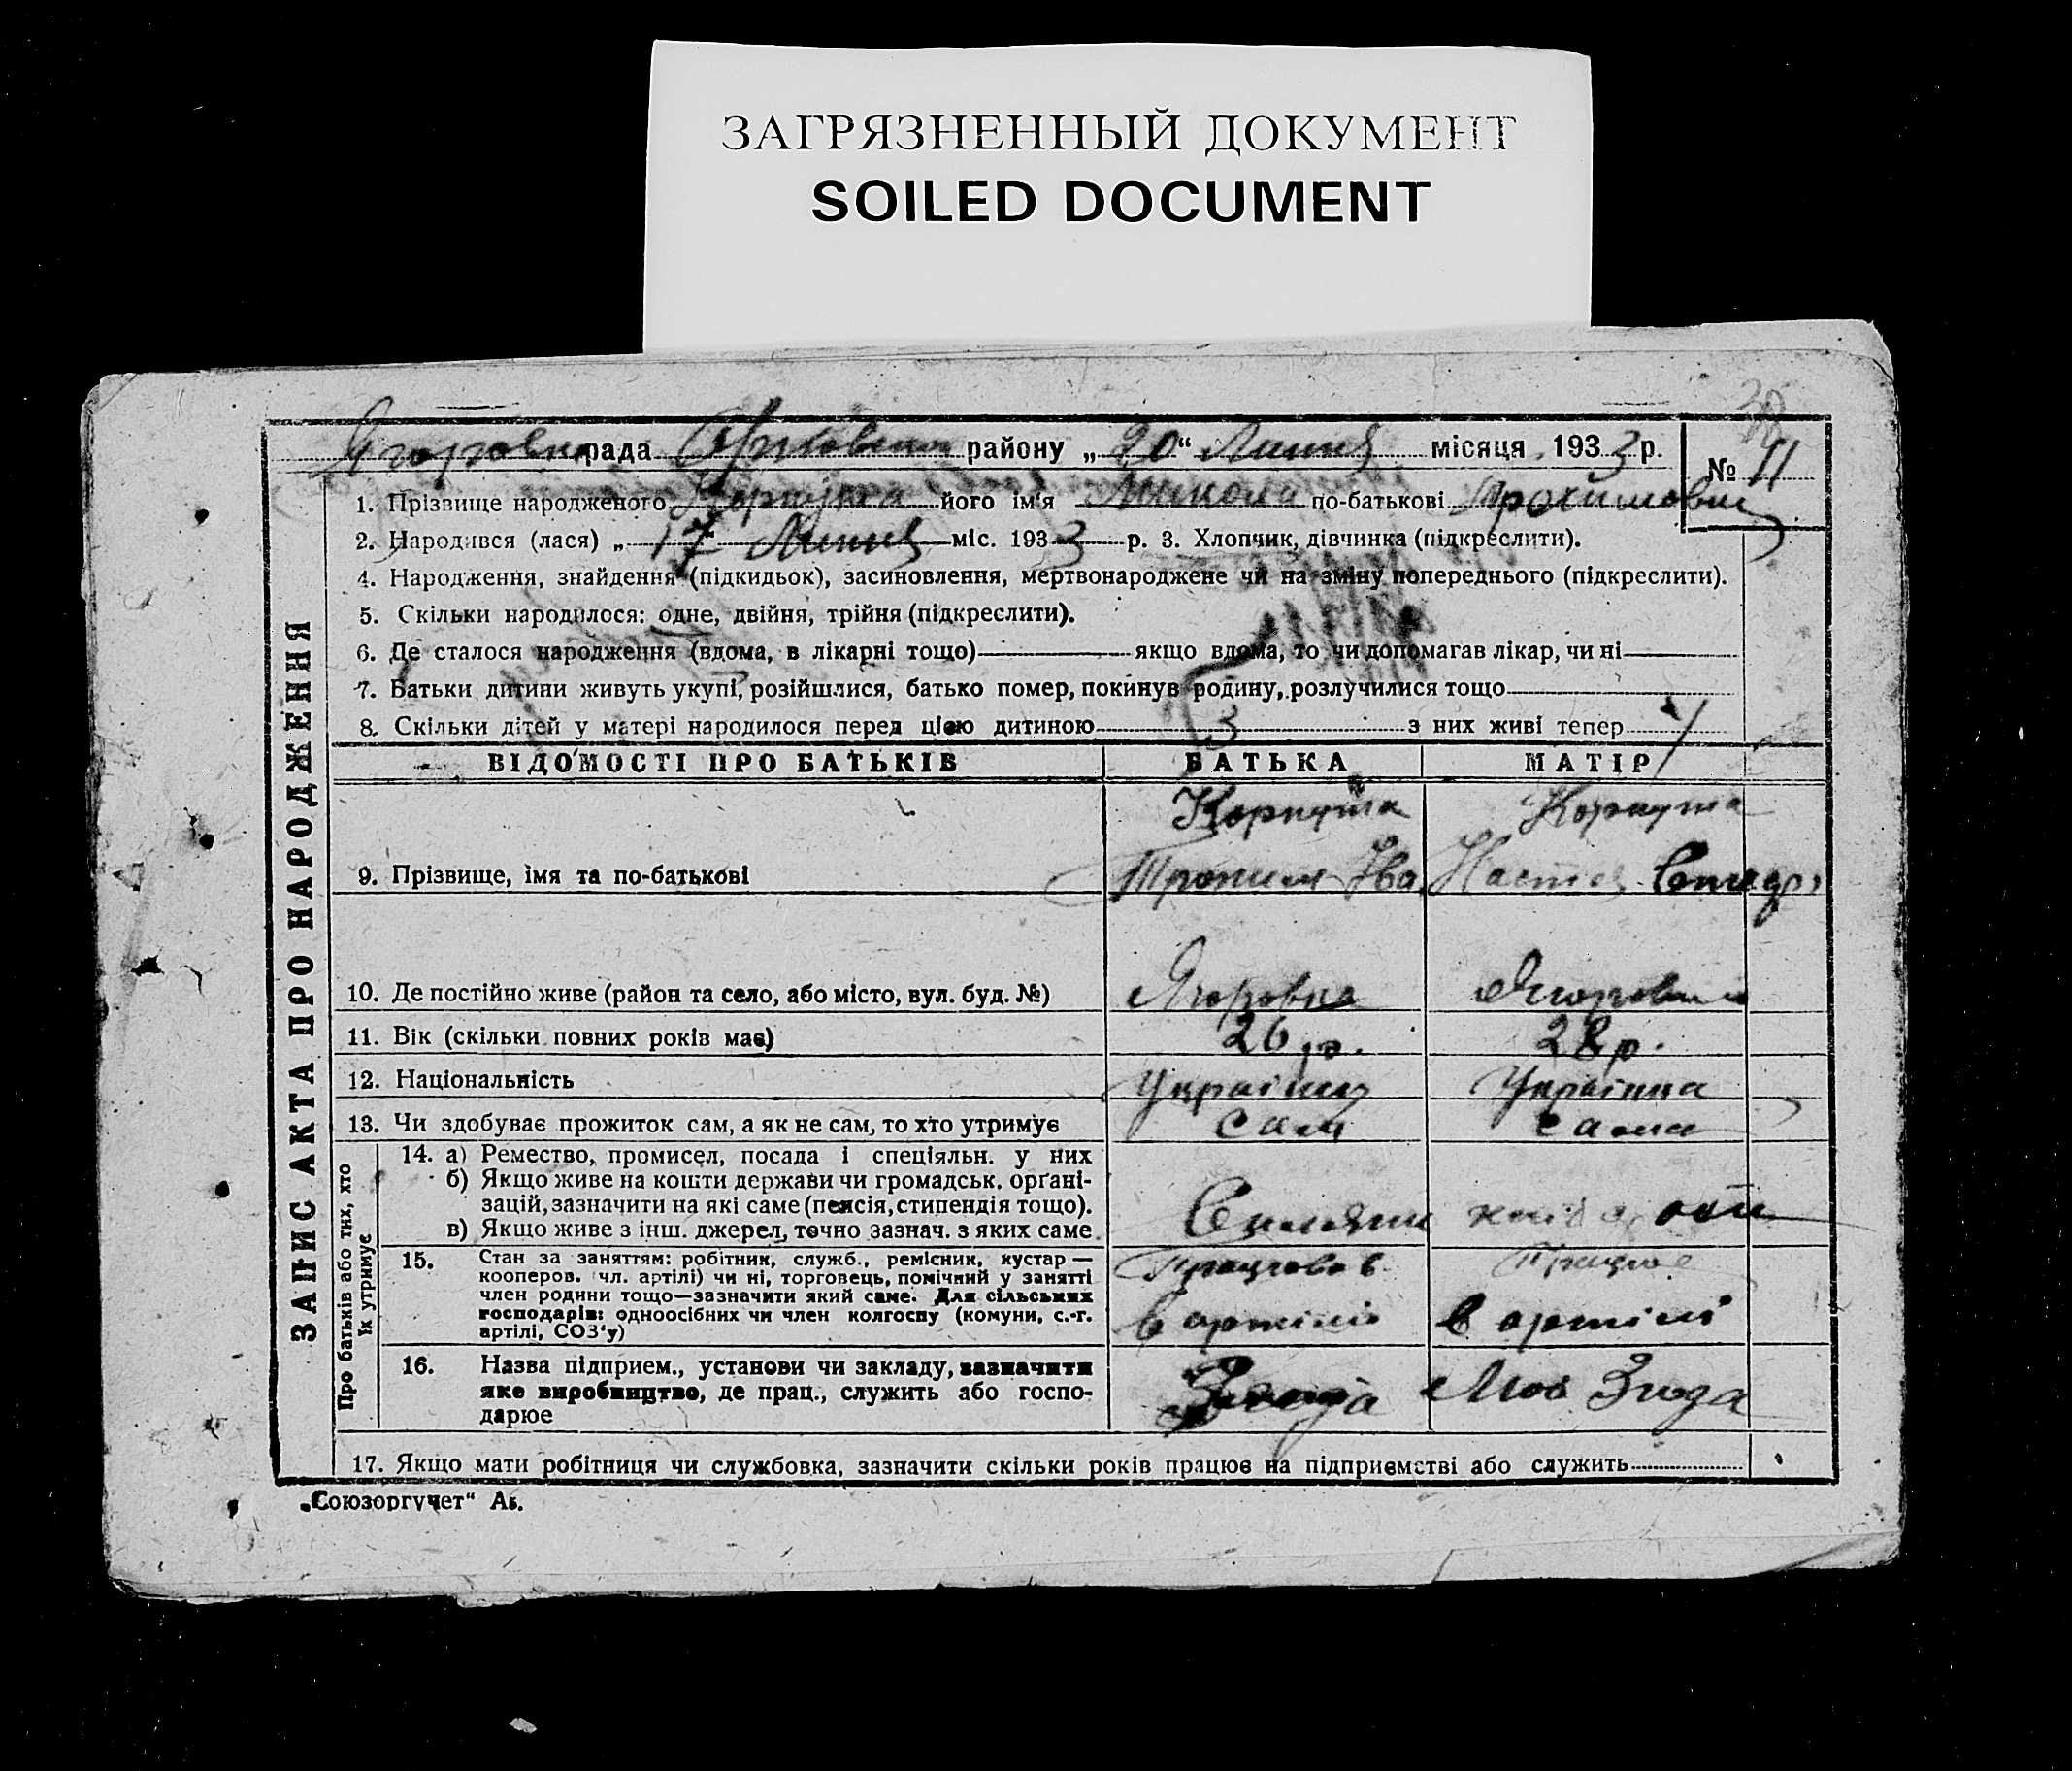 ЗАГРЯЗНЕННЫЙ ДОКУМЕНТ
SOILED DOCUMENT
рада району „20“ Липня місяця 1933 р.
№ 11
1. Прізвище народженого Корпута його ім'я Микола по-батькові
2. Народився (лася) „17 Липня міс. 1933 р. 3. Хлопчик, дівчинка (підкреслити).
4. Народження, знайдення (підкидьок), засиновлення, мертвонароджене чи на зміну попереднього (підкреслити).
5. Скільки народилося: одне, двійня, трійня (підкреслити).
6. Де сталося народження (вдома, в лікарні тощо) якщо вдома, то чи допомагав лікар, чи ні
7. Батьки дитини живуть укупі, розійшлися, батько помер, покинув родину, розлучилися тощо
8. Скільки дітей у матері народилося перед цією дитиною 3 з них живі тепер 1
ЗАПИС АКТА ПРО НАРОДЖЕННЯ
ВІДОМОСТІ ПРО БАТЬКІВ БАТЬКА МАТІР
Корпута Корпута
9. Прізвище, імя та по-батькові Ива Настя
10. Де постійно живе (район та село, або місто, вул. буд. №) Ягоровка
11. Вік (скільки повних років має) 26 р. 28 р.
12. Національність Українец Українка
13. Чи здобуває прожиток сам, а як не сам, то хто утримує сам сама
Про батьків або тих, хто
їх утримує
14. а) Ремество, промисел, посада і спеціяльн. у них
б) Якщо живе на кошти держави чи громадськ. орґані-
зацій, зазначити на які саме (пенсія, стипендія тощо).
в) Якщо живе з інш. джерел, точно зазнач. з яких саме
15. Стан за заняттям: робітник, служб., ремісник, кустар —
кооперов. чл. артілі) чи ні, торговець, помічний у занятті
член родини тощо—зазначити який саме. Для сільських
господарів: одноосібних чи член колгоспу (комуни, с.-г.
артілі, СОЗ'у)
Працював Працює
в артілі в артілі
16. Назва підприєм., установи чи закладу, зазначити
яке виробництво, де прац., служить або госпо-
дарює
Згода
17. Якщо мати робітниця чи службовка, зазначити скільки років працює на підприємстві або служить
„Союзоргучет“ Аг.